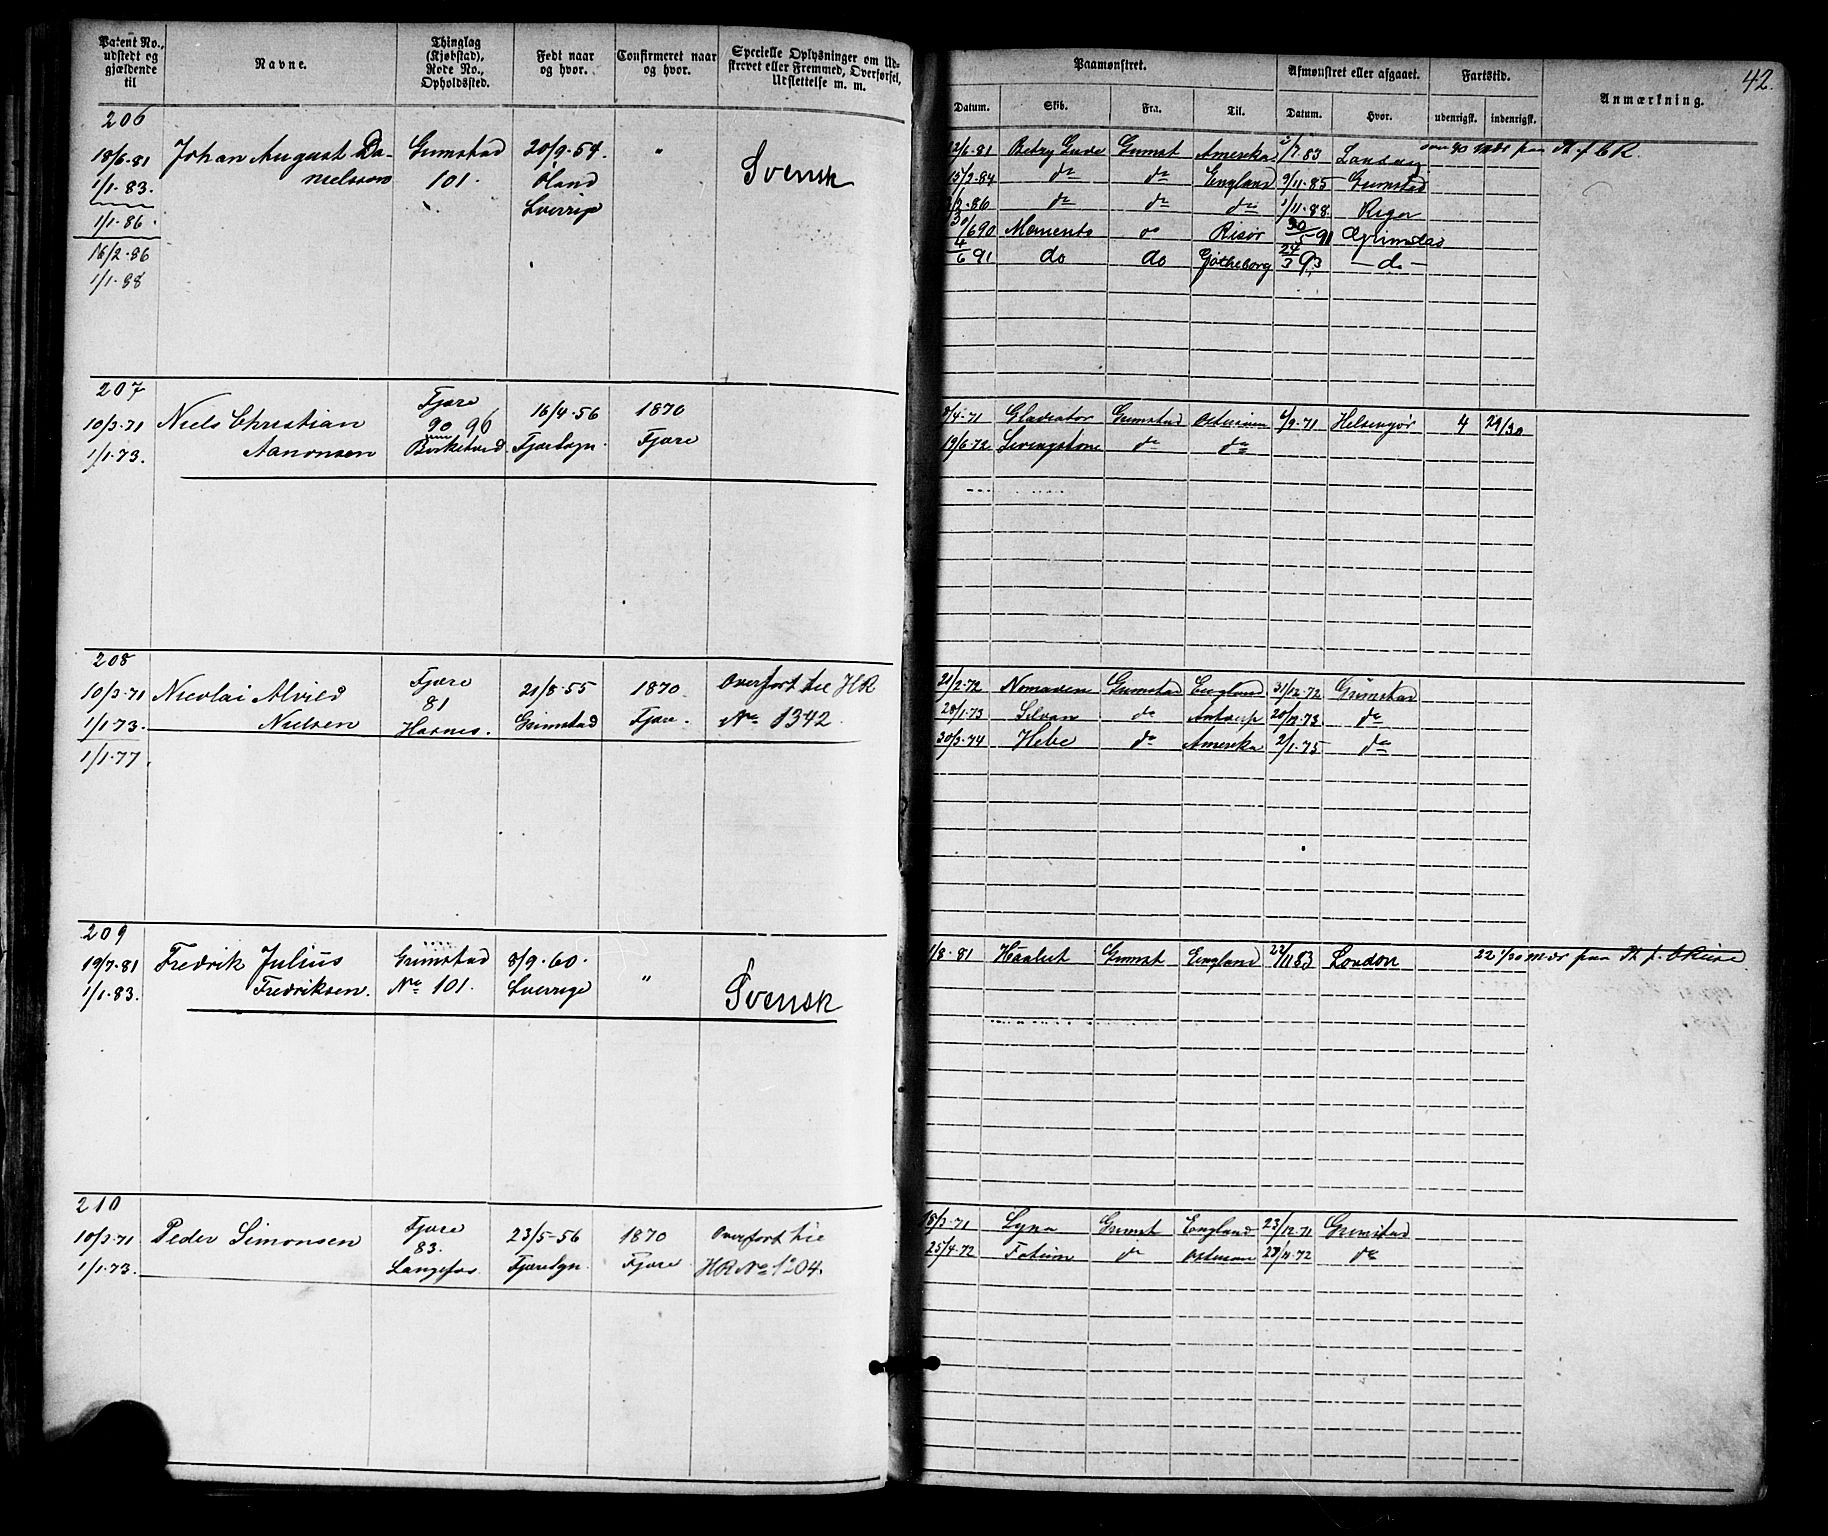 Patent No., udstedt og gjældende til
Navne.
Thinglag (Kjøbstad), Rode No., Opholdssted.
Født naar og hvor.
Confirmeret naar og hvor.
Specielle Oplysninger om Udskrevet eller Fremmed, Overførsel, Udslettelse m. m.
Paamønstret.
Afmønstret eller afgaaet.
Fartstid.
Anmærkning.
42.
Datum.
Skib.
Fra.
Til.
Datum.
Hvor.
udenrigsk.
indenrigsk.
206
18/6-81 Johan August Da- Grimstad 20/9-54. "
1/1-83. nielsson 101. Øland Svensk
1/1-86. Sverrige
16/2-86
1/1-88
12/6-81 Betzy Gude Grimst Amerika 2/7-83 Landsag
15/2-84 do do England 9/11-85 Grimstad
3/2-86 do do do 1/11-88. Riga
30/6 90 Moments do Risør 30/5-91 Grimstad
4/6 91 do do Gøtheborg 24/3 93 - do -
207
10/3-71 Niels Christian Fjære 16/4-56 1870
1/1-73. Aanonsen 90 96 Birketved Fjæresogn. Fjære
8/4-71 Gladiator Grimstad 6/9-71 Helsingør 4 29/30
19/6-72 Livingstone do do
208
10/3-71 Nicolai Alvild Fjære 21/8-55 1870. Overført til HR
1/1-73. Nielsen 81 Hasnes. Grimstad Fjære. No 1342.
1/1-77.
21/2-72 Nomaden Grimstad England 31/12-72 Grimstad
28/1-73 Silvan do Antverp 20/12-73. do
30/3-74 Hebe do Amerika 2/1-75 do
209
19/7-81 Fredrik Julius Grimstad 8/9-60. "
1/1-83. Fredriksen. No 101. Sverrige Svensk
1/8-81 Haabet Grimst England 22/11 83 London 22 1/30 mdr paa
210
10/3-71 Peder Simonsen Fjære 23/5-56 1870 Overført til
1/1-73. 83. Langefos Fjæresgn. Fjære HR No 1204.
18/3-71 Lyna Grimst England 23/12-71 Grimstad
25/4-72 Fotium do 27/11-72 do